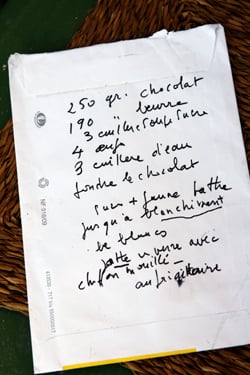 250 gr. chocolat
190 " beurre
3 cuillere soupe sucre
4 œufs
3 cuillere d'eau
fondre le chocolat
sucre + jaune battre
jusqu'à blanchiment
les blancs
verre avec
chiffon mouillé –
au frigidaire